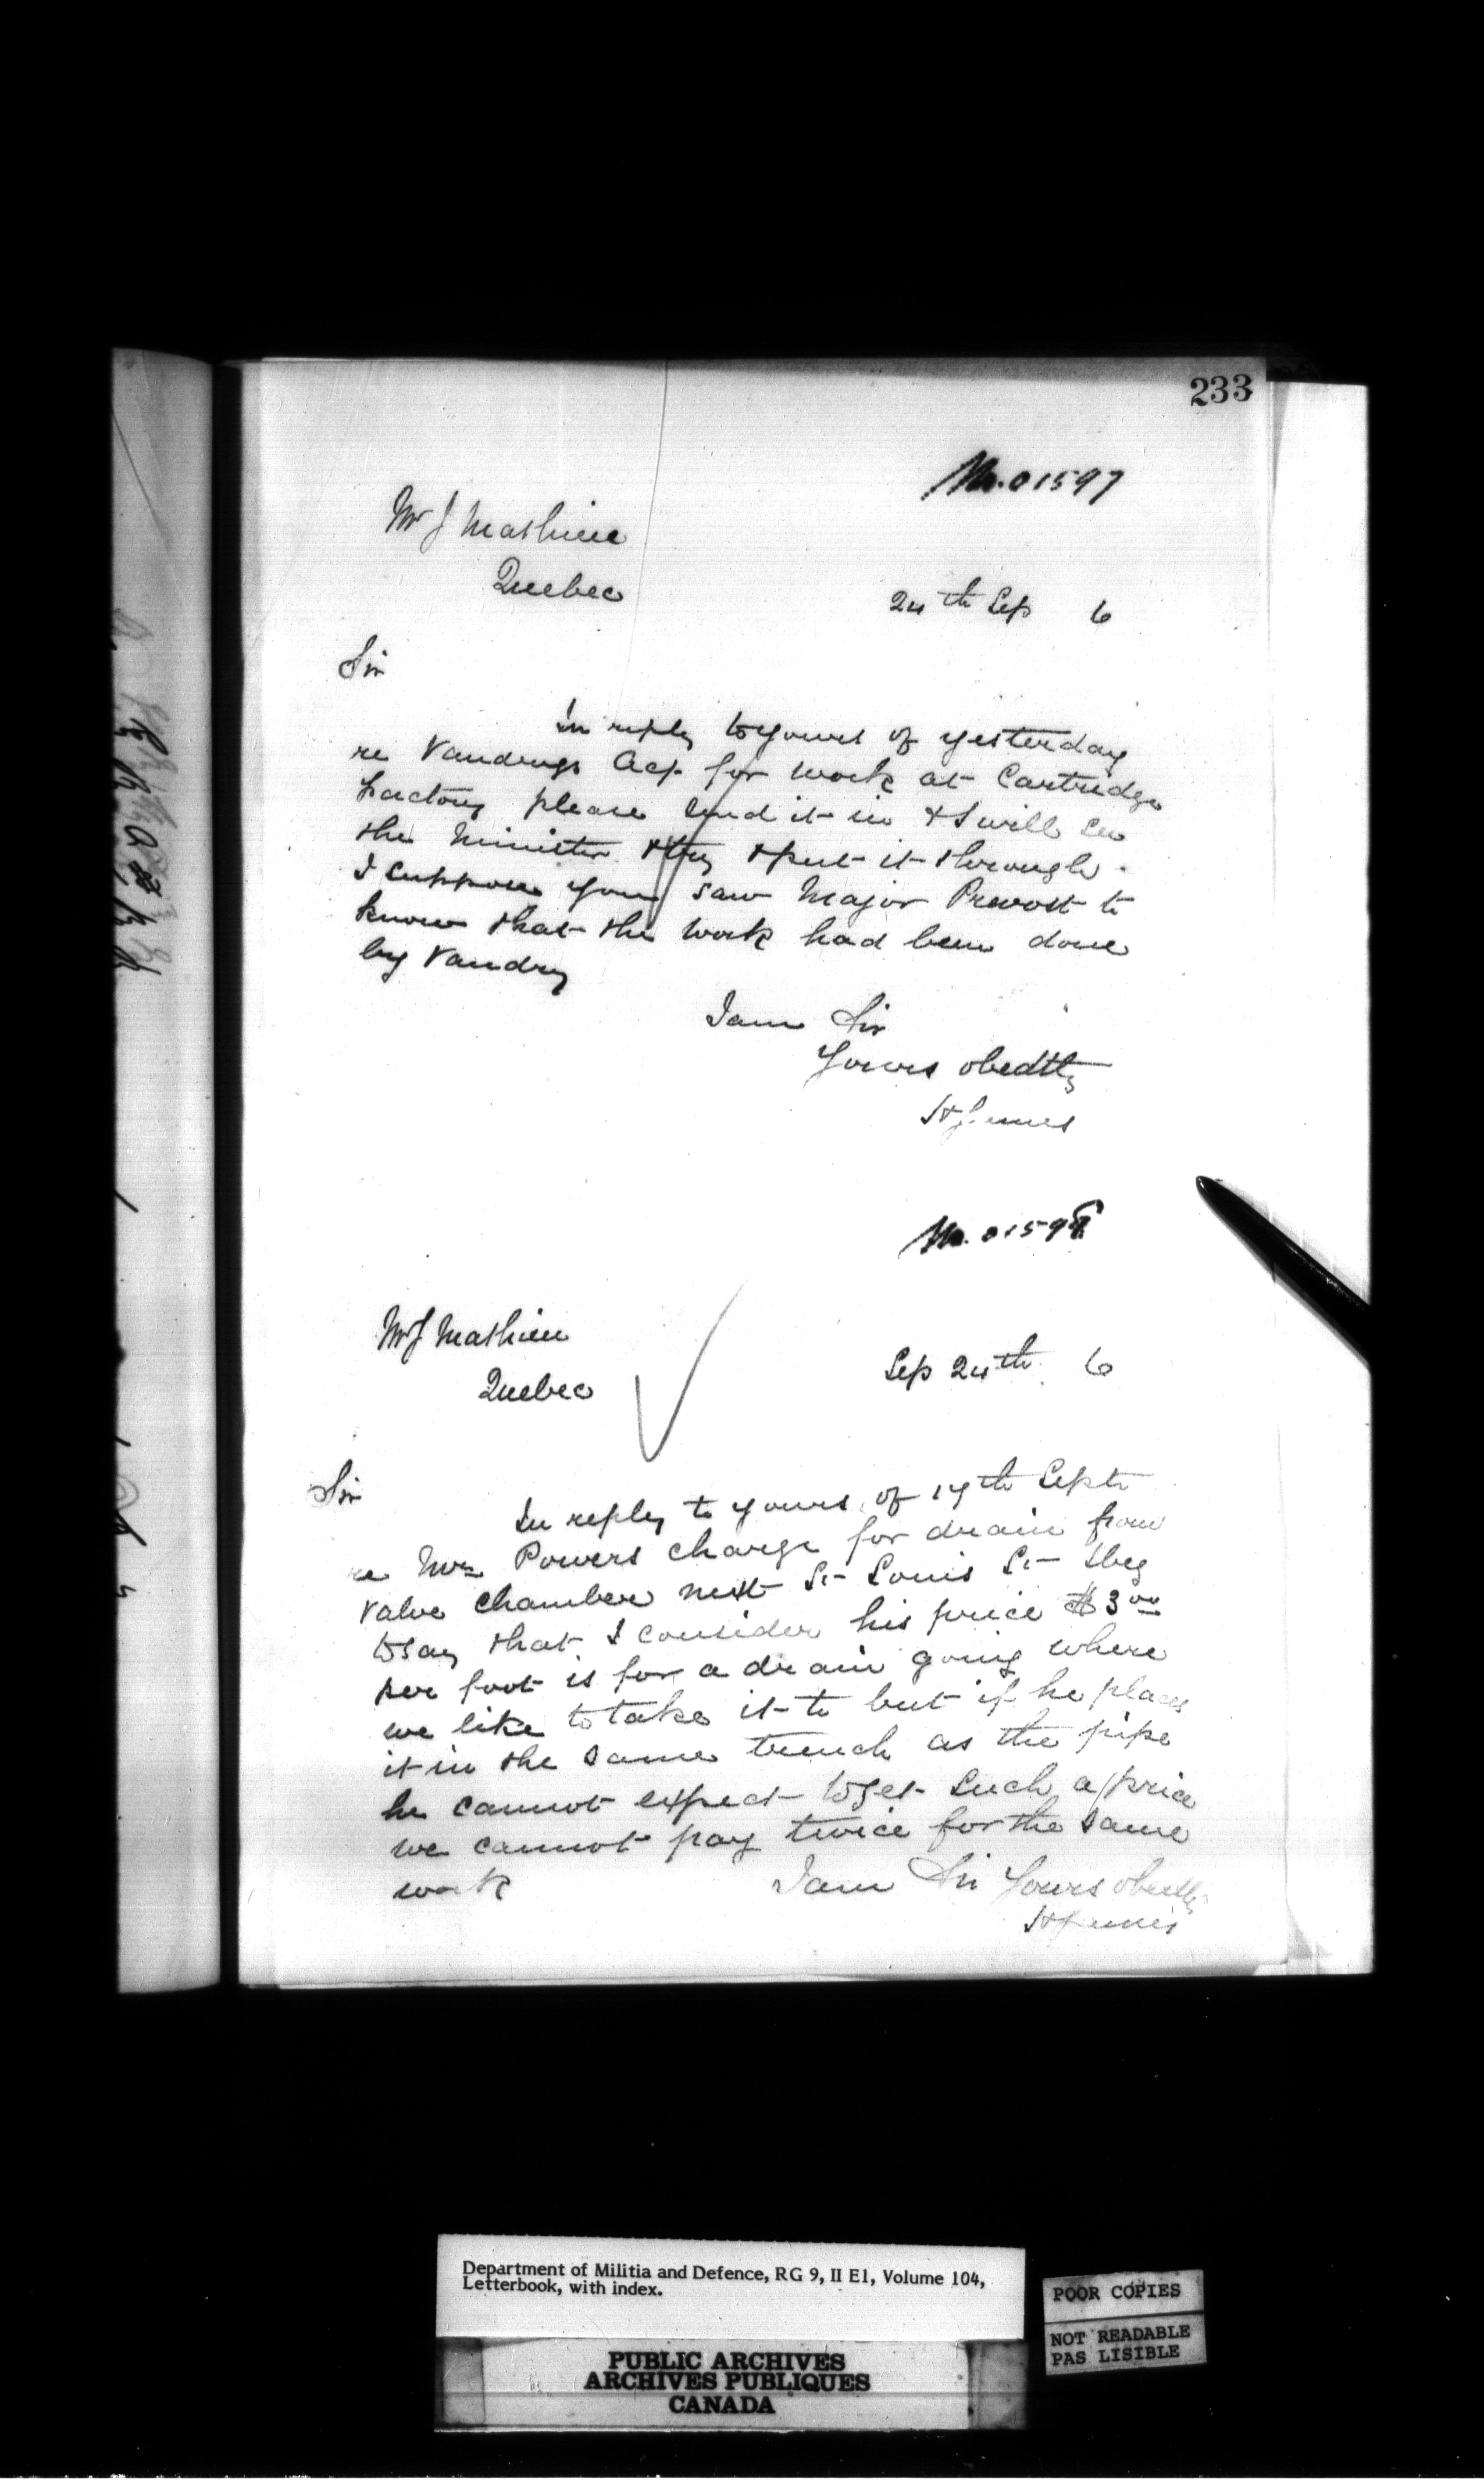 233
No. 01597
Mr J Mathieu
Quebec
24th Sep 6
Sir
In reply to yours of yesterday
re Vandrys Act for work at Cartridge
Factory please send it in & I will see
the Minister & try & put it through.
I suppose you saw Major Prevost to
know that the work had been done
by Vandry
I am Sir
Yours obedtly
H James
No. 01598
Mr J Mathieu
Quebec
Sep 24th 6
Sir
In reply to yours of 17th Septr
re Powers charge for drain from
valve chamber next St Louis St I beg
to say that I consider his price $3.00
per foot is for a drain going where
we like to take it to but if he places
it in the same trench as the pipe
he cannot expect to get such a price
we cannot pay twice for the same
work
I am Sir Yours obedtly
H James
Department of Militia and Defence, RG 9, II E1, Volume 104,
Letterbook, with index.
POOR COPIES
NOT READABLE
PAS LISIBLE
PUBLIC ARCHIVES
ARCHIVES PUBLIQUES
CANADA